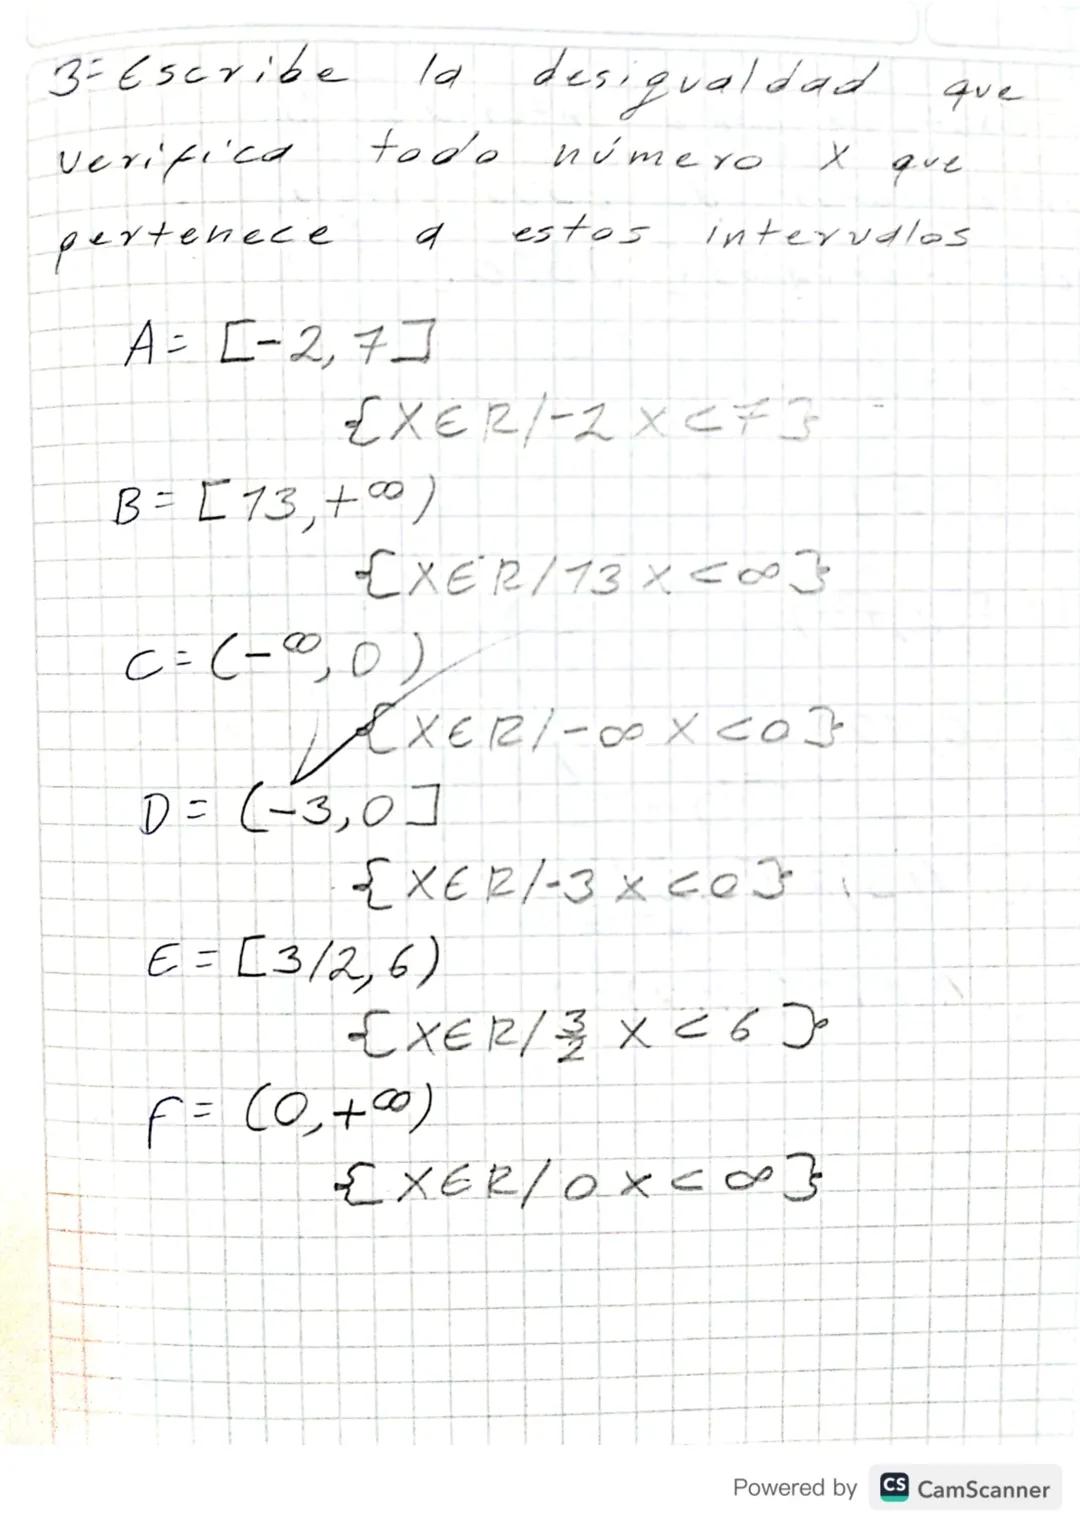 3= Escribe la desigualdad que
verifica todo número X que
pertenece a estos intervalos
A= [-2,7]
{XER/-2 X<7}
B= [13,+∞)
{XER/13 X<∞}
C=(-∞,0)
{XER/-∞ X<0}
D= (-3,0]
{XER/-3 X<0}
E= [3/2,6)
{XER/3/2 X<6}
F= (0,+∞)
{XER/0 X<∞}
Powered by CS CamScanner